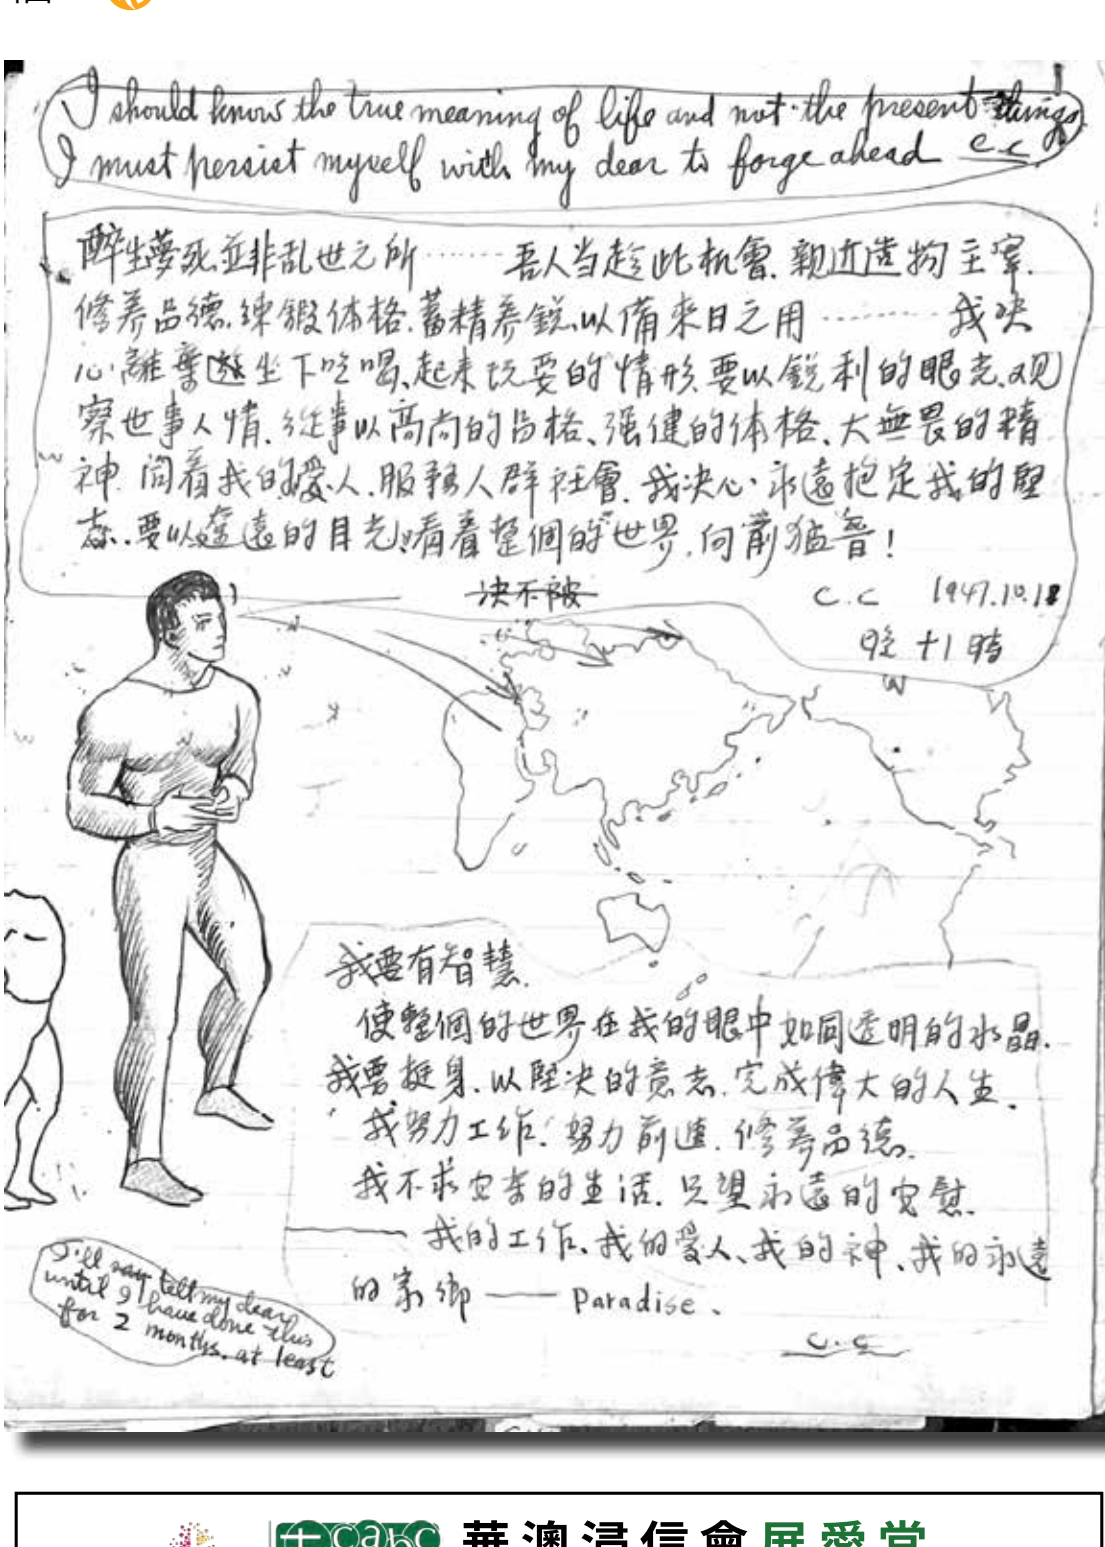 I should know the true meaning of life and not the present things
I must persist myself with my dear to forge ahead C.C
醉生夢死並非乱世之所………吾人当趁此机會.親近造物主宰.
修养品德.鍊鍛体格.蓄精养銳.以備來日之用………我决
心離棄坐下吃喝、起来玩耍的情形.要以銳利的眼光.观
察世事人情.從事以高尚的品格、强健的体格、大無畏的精
神.同着我的愛人.服務人群社會.我决心永遠抱定我的堅
志.要以遠的目光!看着整個的世界.向前猛晋!
决不被
C.C 1947.10.18
晚十1時
我要有智慧.
使整個的世界在我的眼中如同透明的水晶.
我要挺身.以堅决的意志.完成偉大的人生.
我努力工作.努力前進.修养品德.
我不求安的生活.只望永遠的安慰.
——我的工作、我的愛人、我的神、我的永遠
的家鄉——Paradise.
C.C
I'll tell my dear
until I have done this
for 2 months. at least
cabc 華澳浸信會展愛堂